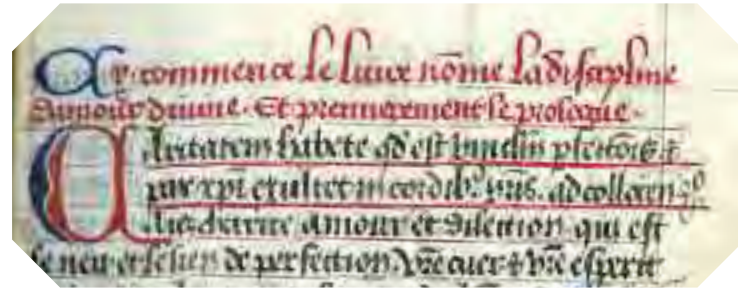 Cy commence le liure nōme la discipline
damour diuine. Et premierement le prologue.
Caritatem habete qd est vinculū pfectiōis. et
pax xpi exultet in cordib9 vris. ad coloceñ 3o
charite amour et dilection qui est
le neu et le lien de perfection. Vrē cuer et vrē esperit